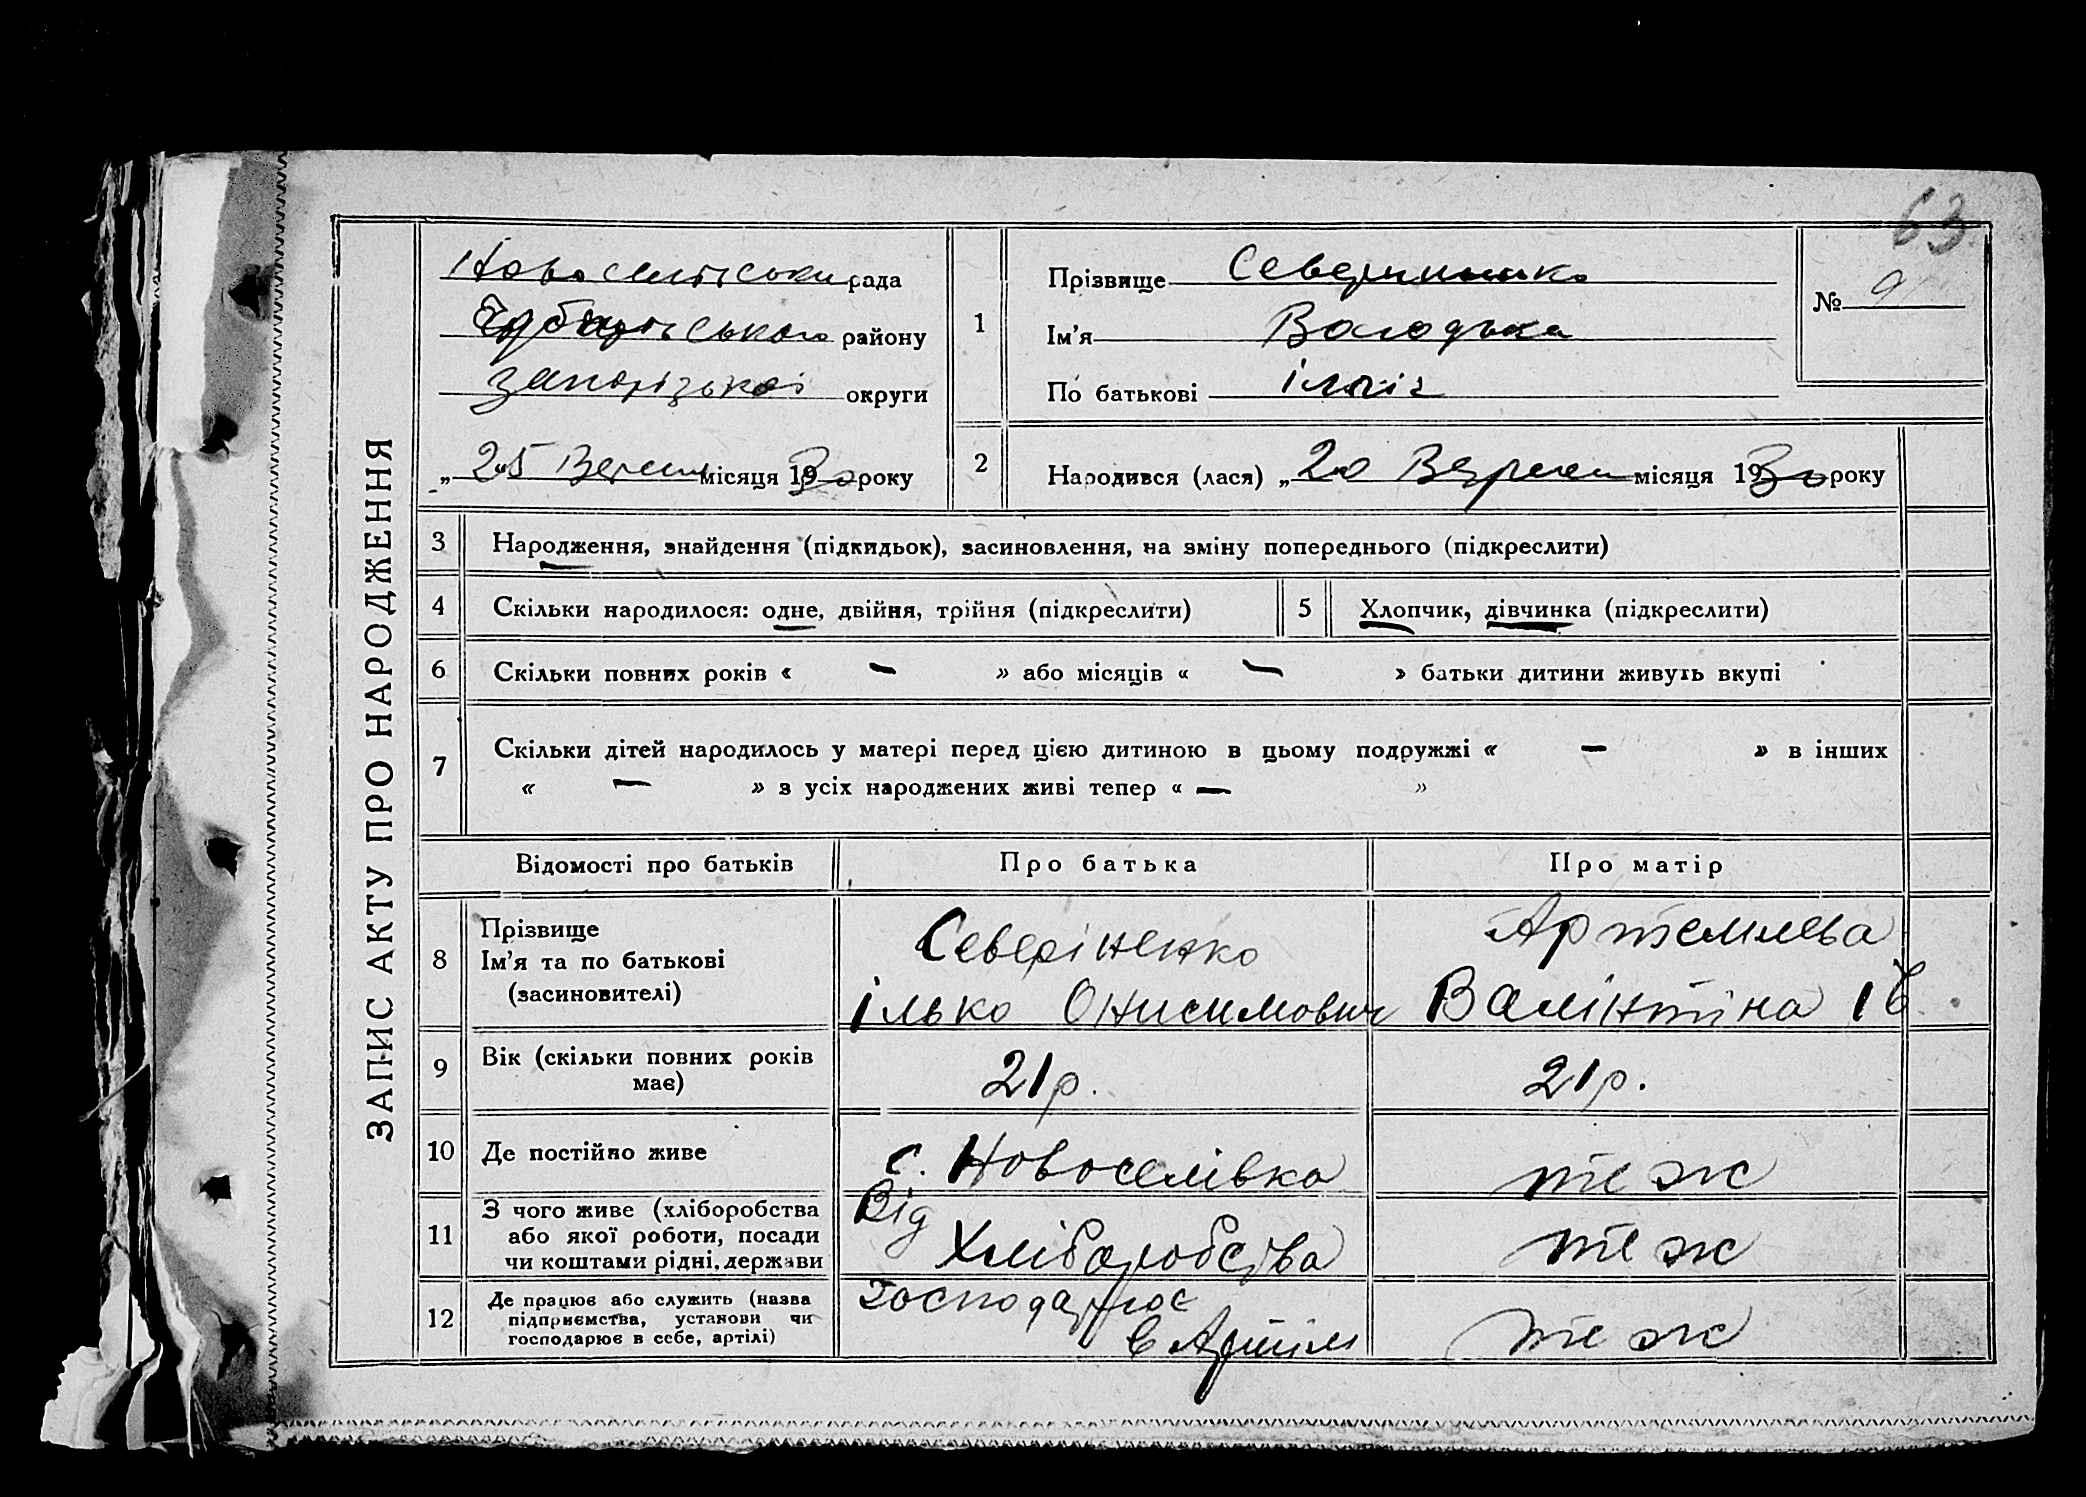 63
ЗАПИС АКТУ ПРО НАРОДЖЕННЯ
рада
району
запорізької округи
„25 Верес місяця 1930 року
1
Прізвище Севериненко
Ім'я Володька
По батькові
№ 9
2
Народився (лася) „20 Верес місяця 1930 року
3
Народження, знайдення (підкидьок), засиновлення, на зміну попереднього (підкреслити)
4
Скільки народилося: одне, двійня, трійня (підкреслити)
5
Хлопчик, дівчинка (підкреслити)
6
Скільки повних років « — » або місяців « — » батьки дитини живуть вкупі
7
Скільки дітей народилось у матері перед цією дитиною в цьому подружжі « — » в інших
« — » з усіх народжених живі тепер « — »
Відомості про батьків
Про батька
Про матір
8
Прізвище
Ім'я та по батькові
(засиновителі)
Северіненко
ілько Онисимович
Артемлева
Валінтіна Ів
9
Вік (скільки повних років
має)
21р.
21р.
10
Де постійно живе
с. Новоселівка
теж
11
З чого живе (хліборобства
або якої роботи, посади
чи коштами рідні, держави
Від
Хліборобства
теж
12
Де працює або служить (назва
підприємства, установи чи
господарює в себе, артілі)
Господарює
в Артіли
теж